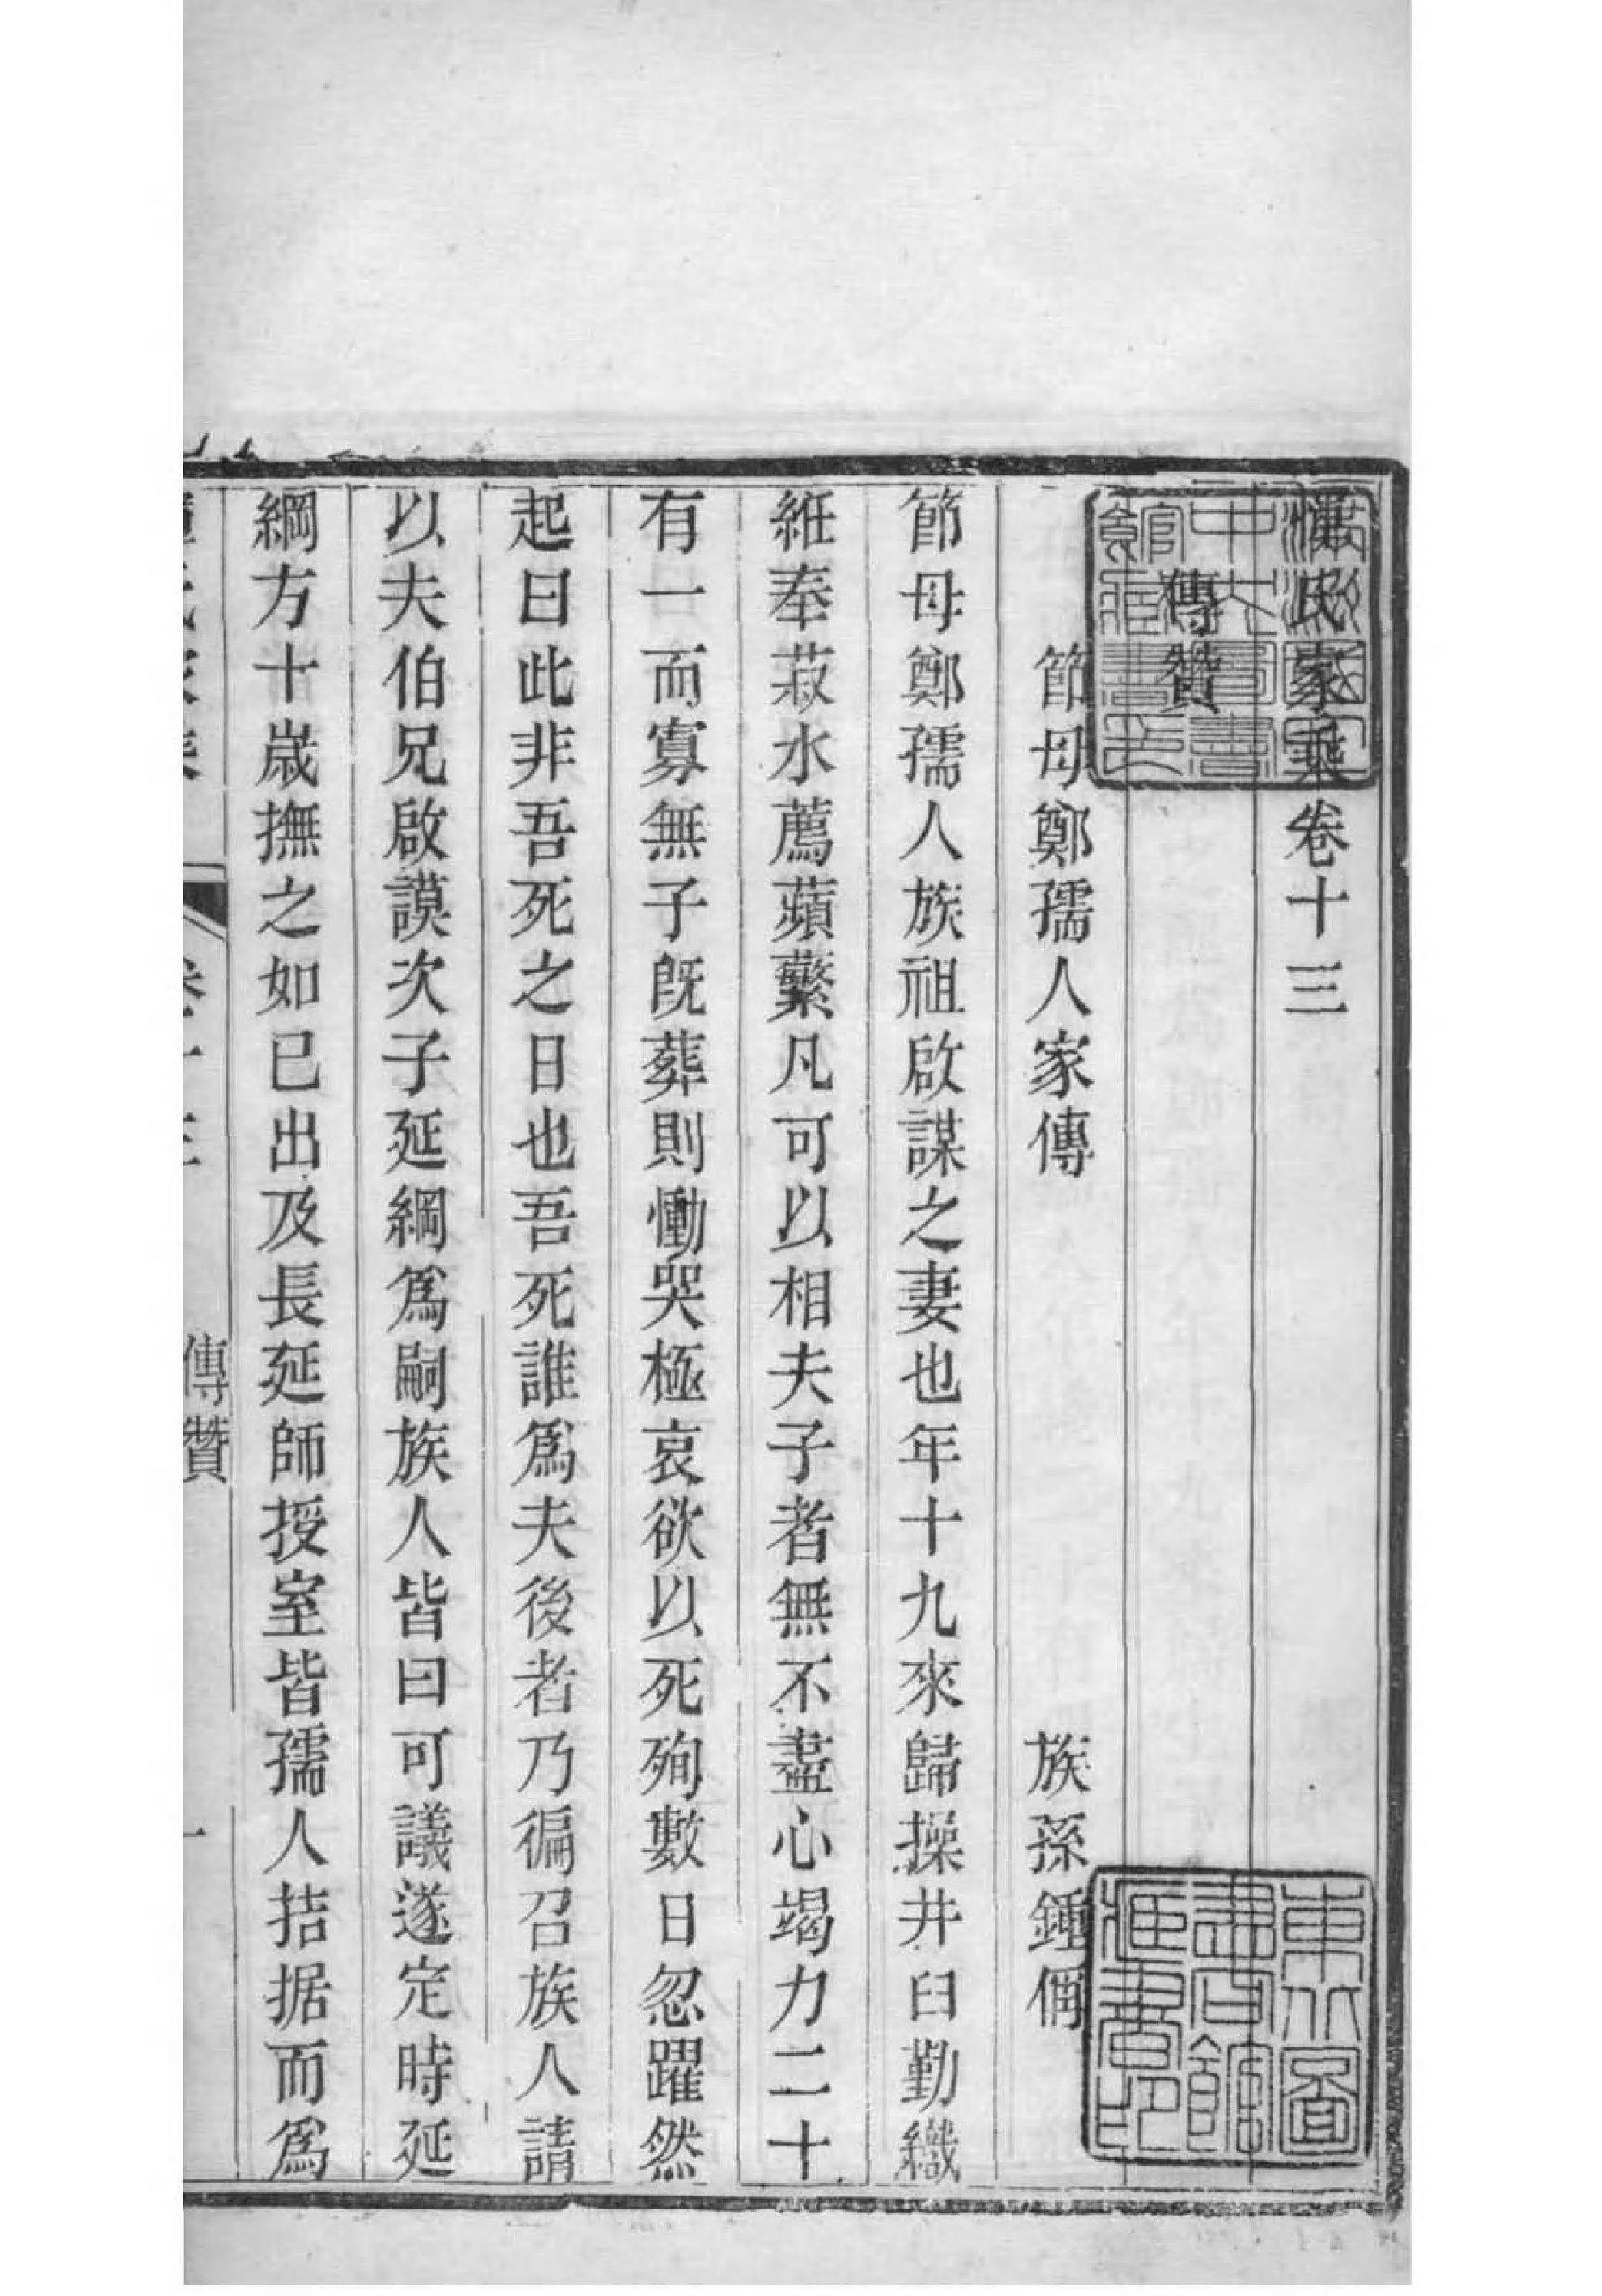 氏家乘卷十三
傳贊
節母鄭孺人家傳　族孫鍾偁
節母鄭孺人族祖啟謀之妻也年十九來歸操井臼勤織
紝奉菽水薦蘋蘩凡可以相夫子者無不盡心竭力二十
有一而寡無子旣葬則慟哭極哀欲以死殉數日忽躍然
起曰此非吾死之日也吾死誰爲夫後者乃徧召族人請
以夫伯兄啟謨次子延綱爲嗣族人皆曰可議遂定時延
綱方十歲撫之如已出及長延師授室皆孺人拮据而爲
傳贊
一